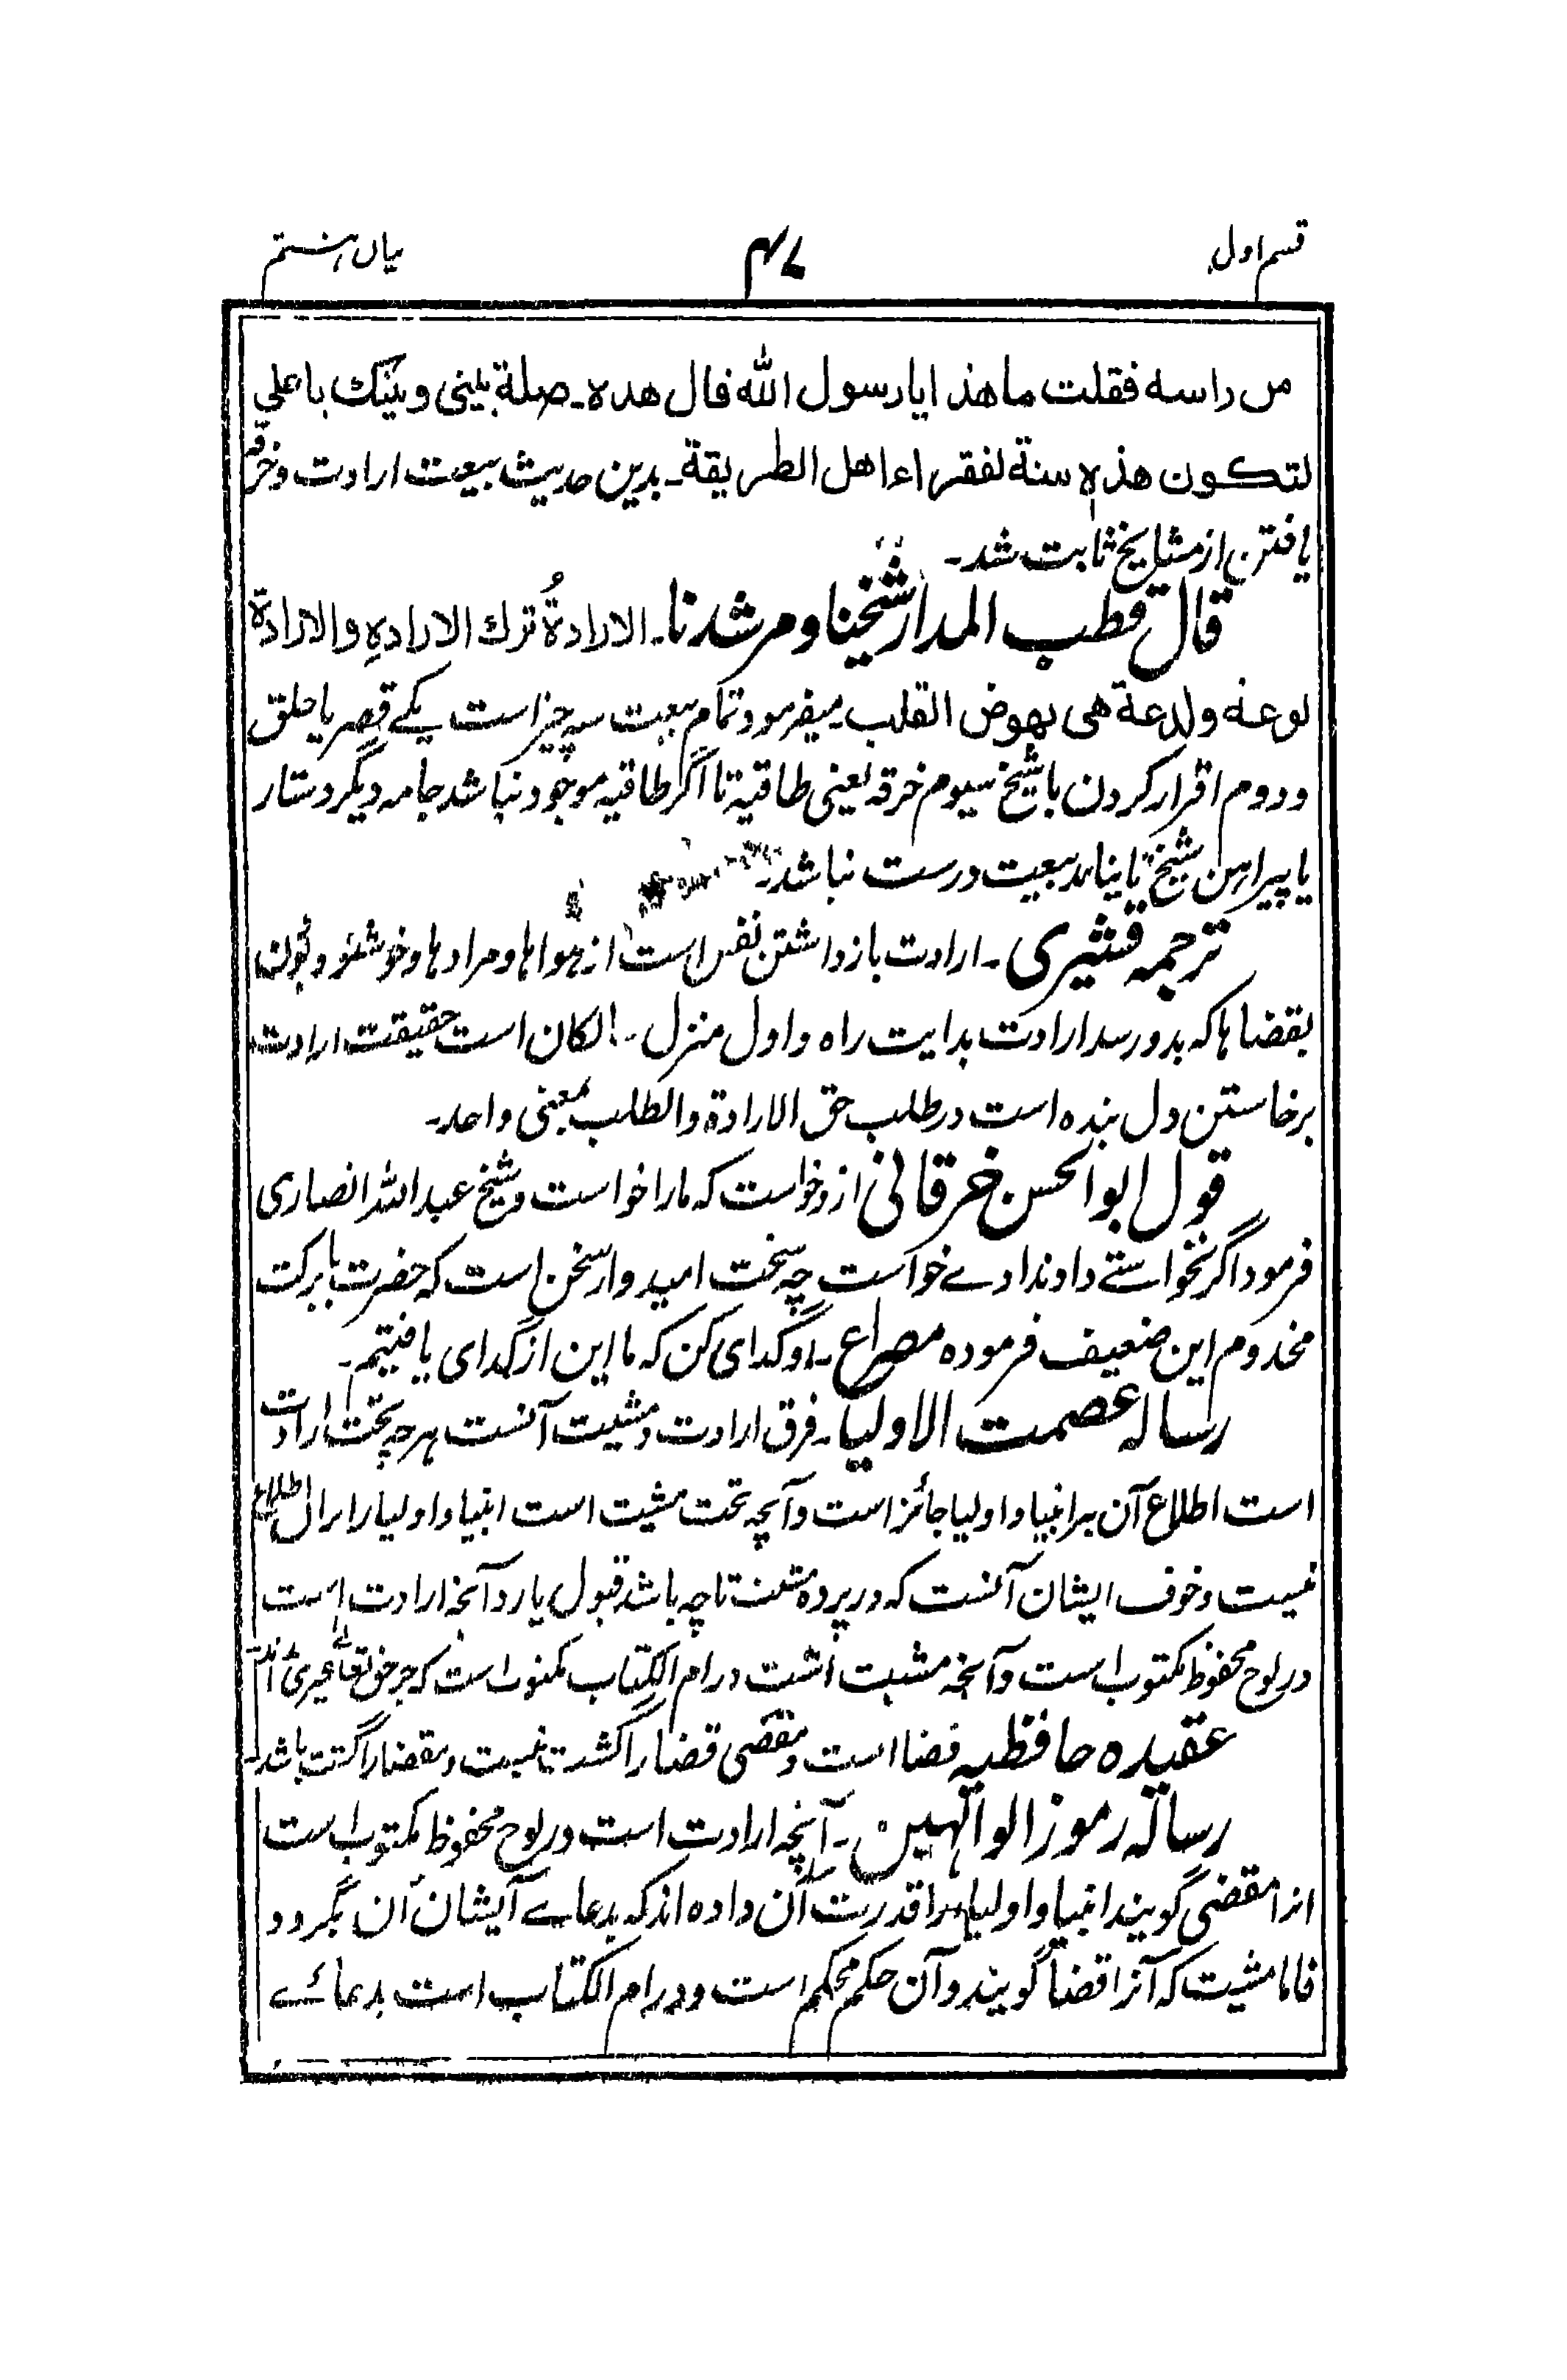 قسم اول
۴۷
بیان ہشتم
من راسه فقلت ماهذا یارسول الله قال هذه۔ صلة بینی وبینك یا علی
لتکون هذه سنة لفقراء اهل الطریقة۔ بدین حدیث بیعت ارادت وخرقه
یافتن از مشایخ ثابت شد۔
قال قطب المدار شیخنا ومرشدنا۔ الارادةُ ترك الارادةِ والارادة
لوعة ولدعة هی نهوض القلب۔ میفرمود تمام بیعت سه چیز است یکے قصر یا حلق
ودوم اقرار کردن با شیخ سیوم خرقه یعنی طاقیة تا اگر طاقیه موجود نباشد جامه دیگر دستار
یا پیراهن شیخ نیابند بیعت درست نباشد۔
ترجمہ قشیری۔ ارادت بازداشتن نفس است از هواها ومرادها وخوشنود بودن
بقضاها که بدو رسد ارادت بدایت راه واول منزل۔ است حقیقت ارادت
برخاستن دل بنده است در طلب حق الارادة والطلب بمعنی واحد۔
قول ابوالحسن خرقانی از وخواست که مارا خواست وشیخ عبدالله انصاری
فرمود اگر نخواستے دادند ادے خواست چه سخت امیدوار سخن است که حضرت بابرکت
مخدوم این ضعیف فرموده مصراع۔ رو گدای کن که ما این از گدای یافتیم۔
رساله عصمت الاولیا۔ فرق ارادت ومشیت آنست هرچه تحت ارادت
است اطلاع آن بر انبیا واولیا جائز است وآنچه تحت مشیت است انبیا واولیا را بران اطلاع
نیست وخوف ایشان آنست که در پرده مشیت تا چه باشد قبول یا رد آنچه ارادت است
در لوح محفوظ مکتوب است وآنچه مشیت است در ام الکتاب مکنون است که جز حق تعالے
عقیده حافظیه قضا است ومقضی قضا را گشت نیست ومقضا را گشت باشد
رساله رموز الوالهین۔ آنچه ارادت است در لوح محفوظ مکتوب است
انرا مقضی گویند انبیا واولیا را قدرت آن داده اند که بدعاے ایشان آن بگردد
فاما مشیت که آنرا قضا گویند وآن حکم محکم است ودر ام الکتاب است بدعائے